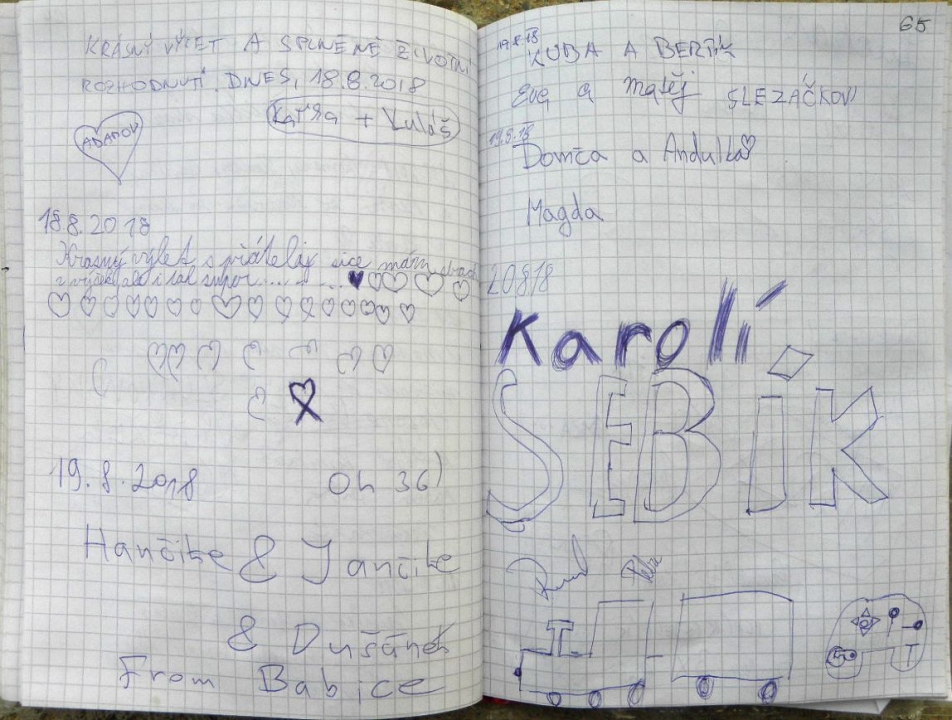 KRÁSNÝ VÝLET A SPLNĚNÉ ŽIVOTNÍ
ROZHODNUTÍ. DNES, 18.8.2018
Katka + Lukáš
ADAMOV
18.8.2018
Krásný výlet s přáteli, sice mám strach
z výšek ale i tak super.....
19.8.2018 0h 36)
Hančike & Jančike
& Dušánek
From Babice
65
19.8.18
KUBA A BERTÍK
Eva a Matěj SLEZÁČKOVI
19.8.18
Domča a Andulka
Magda
20818
Karolí
SEBÍK